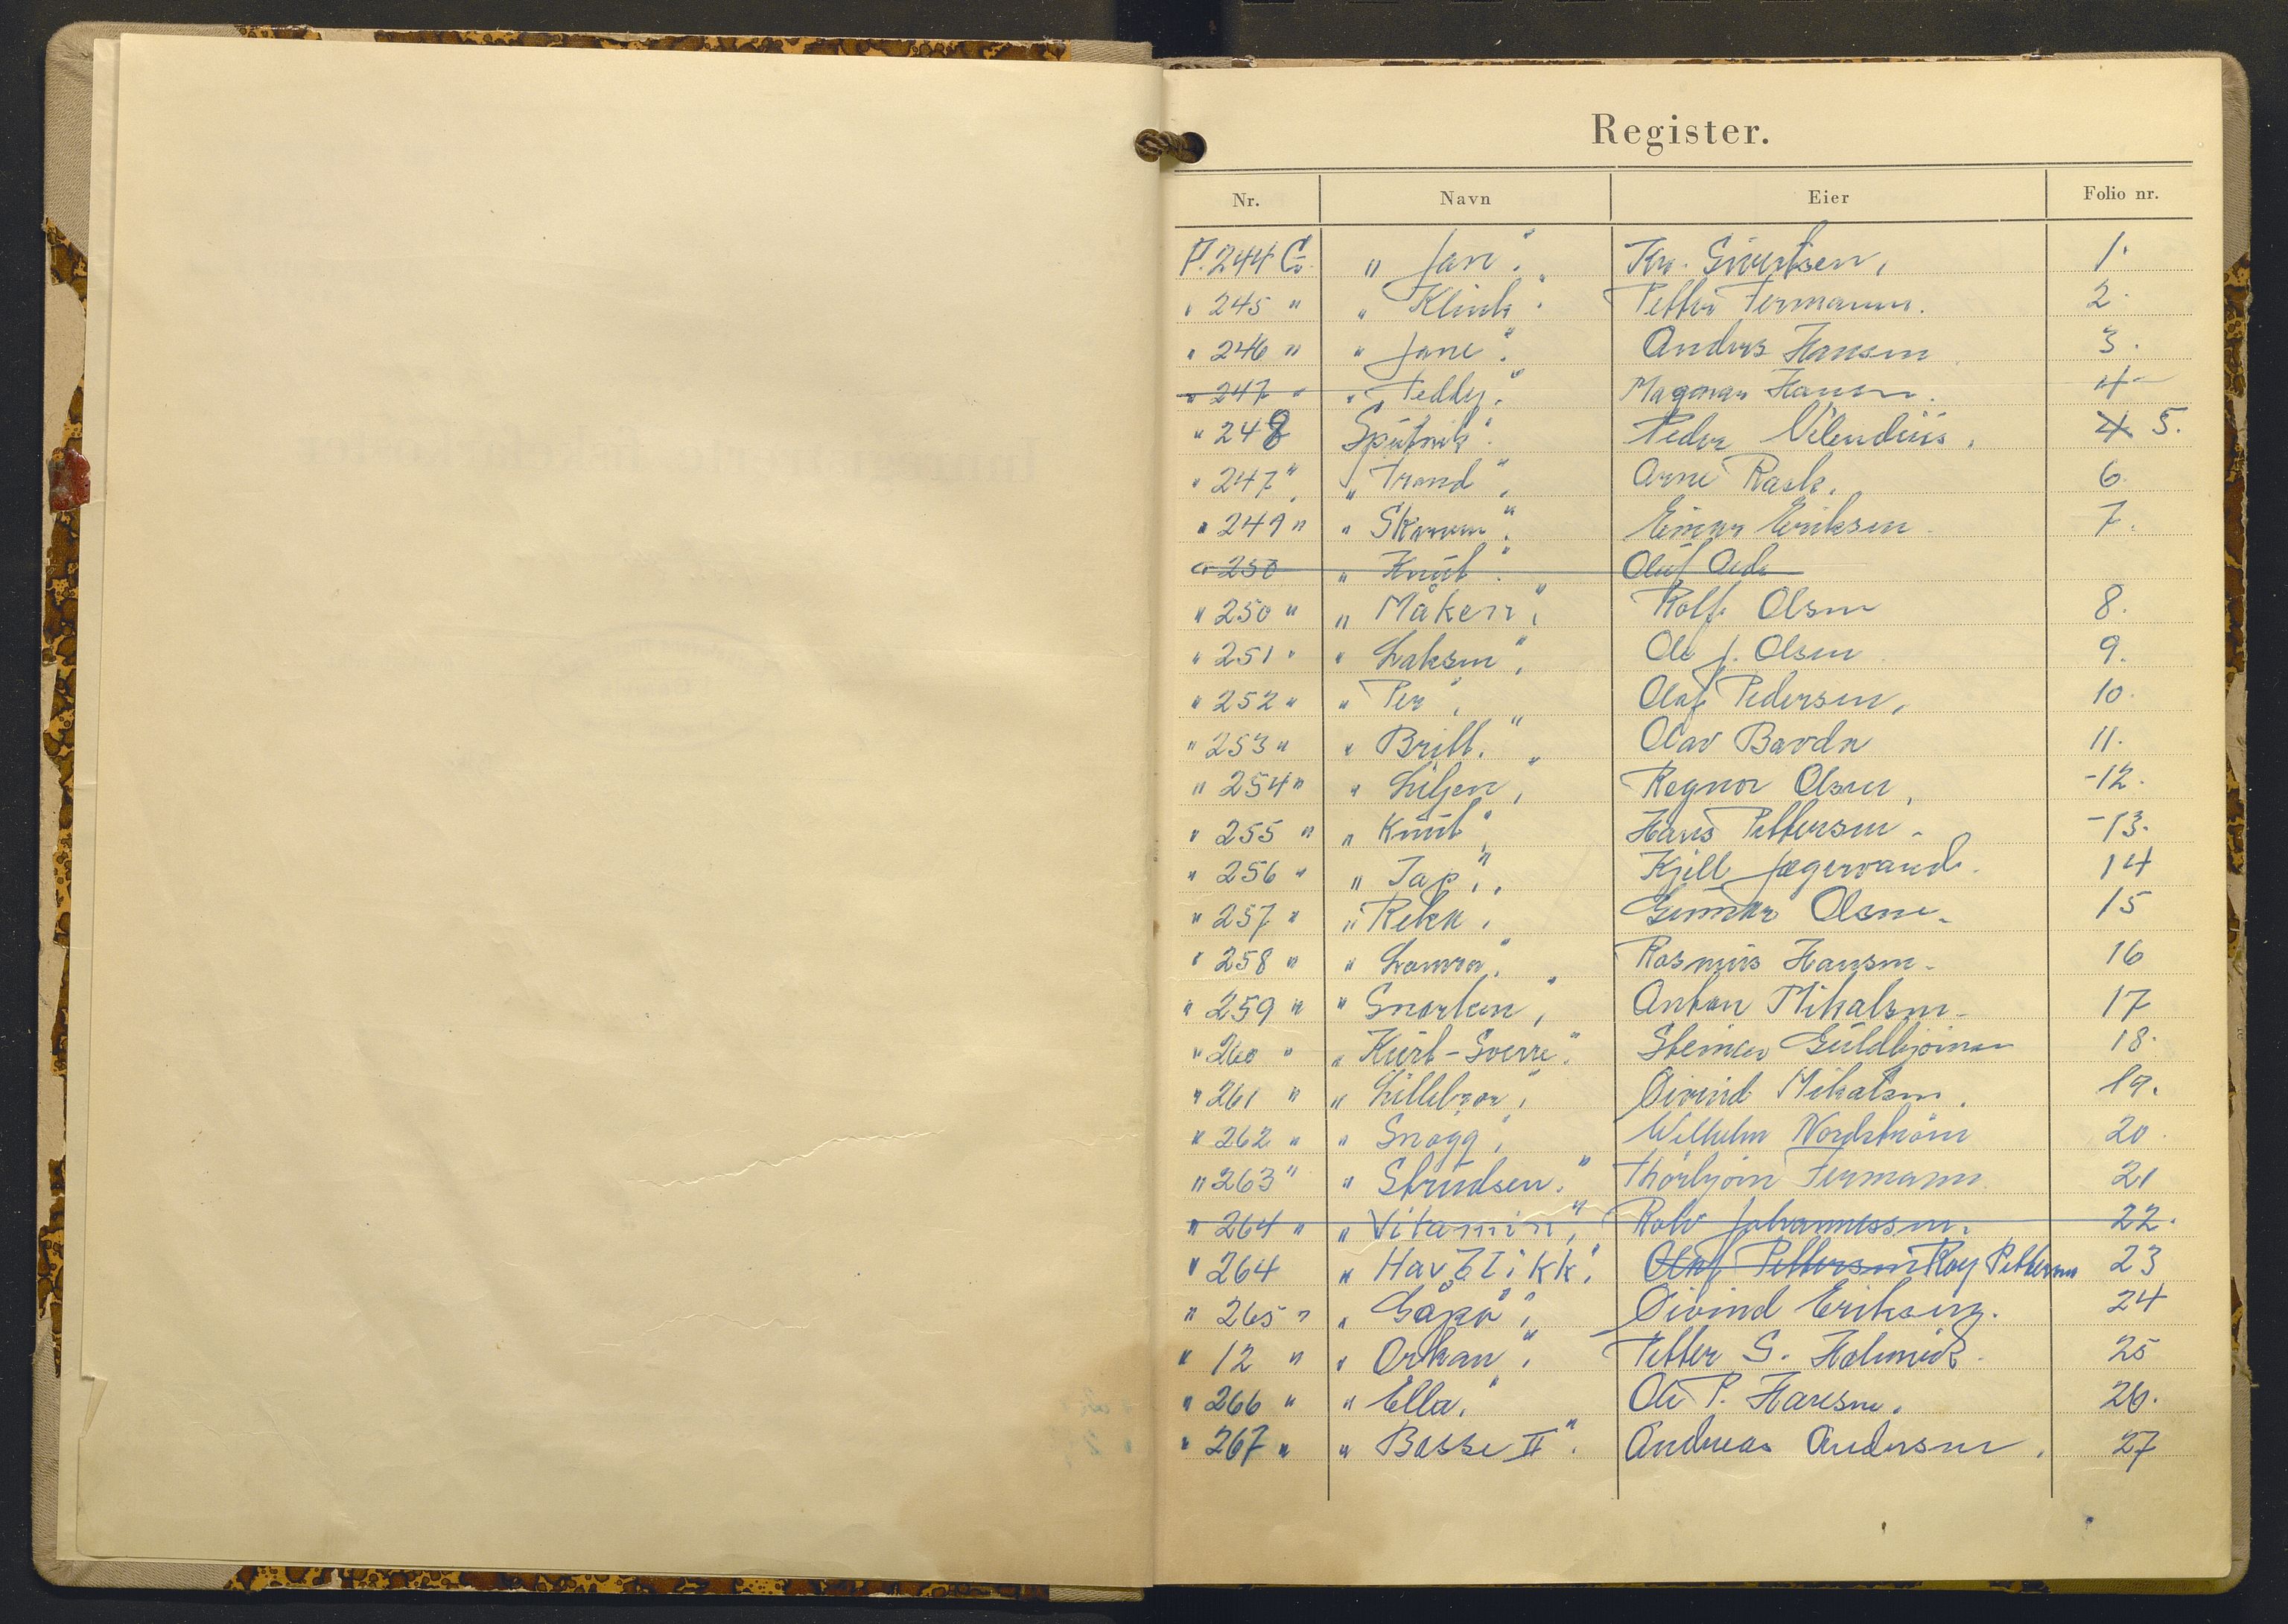 Register.
Nr. Navn Eier Folio nr.
P. 244 G. " Jan". Kr. Sivertsen, 1.
" 245 " " Klink". Petter Fermann. 2.
" 246 " " Jane". Anders Hansen 3.
" 247 " " Teddy". Magnar Hansen. 4
" 248 Sputnik". Peder Vilendius. 4 5.
" 247 " " Trond". Arne Rask. 6
" 249 " " Skarven". Einar Eriksen 7.
" 250 " Knut". Oluf
" 250 " " Måken". Rolf Olsen 8.
" 251 " " Laksen". Ole J. Olsen 9.
" 252 " " Per". Olaf Pedersen, 10.
" 253 " " Britt." Olav 11.
" 254 " " Liljen", Ragnor Olsen, -12.
" 255 " " Knut" Hans Pettersen. -13.
" 256 " " Jap". Kjell Jægervand. 14
" 257 " " Reka". Gunnar Olsen. 15
" 258 " " Rasmus Hansen. 16
" 259 " " Snorken", Anton Mikalsen. 17
" 260 " " Kurt-Sverre". Steinar Guldbjørnsen 18.
" 261 " " Lillebror", Øivind Mikalsen. 19.
" 262 " " Snøgg", Wilhelm Nordstrøm 20.
" 263 " " Strudsen." Thorbjørn Fermann 21
" 264 " " Vitamin", Rolv Johannessen. 22.
" 264 " Havblikk". Olaf Pettersen Roy Pettersen 23
" 265 " " Gåpå", Øivind Eriksen. 24
" 12 " " Orkan". Petter S. Holmvik. 25
" 266 " " Ella." Ole P. Hansen. 26.
" 267 " " Basse II". Andreas Andersen. 27